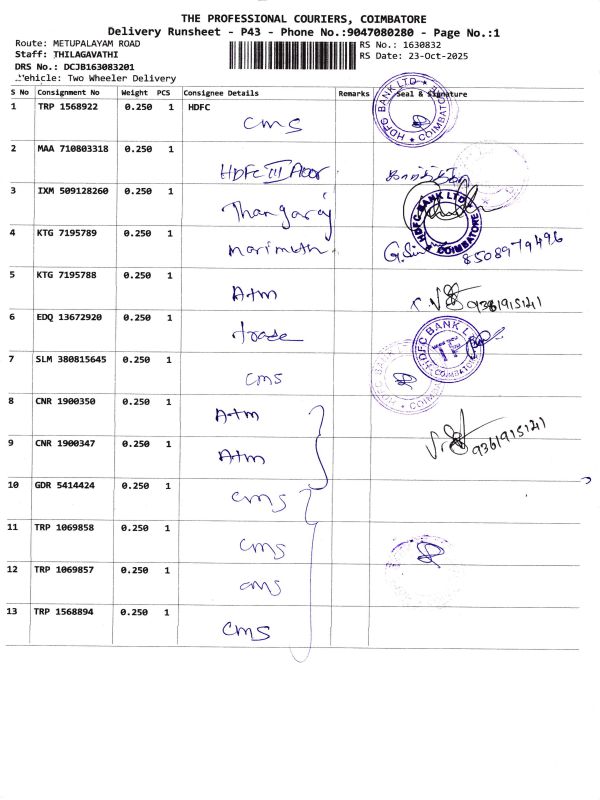 THE PROFESSIONAL COURIERS, COIMBATORE
Delivery Runsheet - P43 - Phone No.:9047080280 - Page No.:1
Route: METUPALAYAM ROAD RS No.: 1630832
Staff: THILAGAVATHI RS Date: 23-Oct-2025
DRS No.: DCJB163083201
Vehicle: Two Wheeler Delivery
S No Consignment No Weight PCS Consignee Details Remarks Seal & Signature
1 TRP 1568922 0.250 1 HDFC
cms
HDFC BANK LTD COIMBATORE
2 MAA 710803318 0.250 1
HDFC III Floor
3 IXM 509128260 0.250 1
Thangaraj
HDFC BANK LTD COIMBATORE
4 KTG 7195789 0.250 1
marimuth
8508979496
5 KTG 7195788 0.250 1
Atm
9361915121
6 EDQ 13672920 0.250 1
trade
HDFC BANK LTD COIMBATORE
7 SLM 380815645 0.250 1
cms
8 CNR 1900350 0.250 1
Atm
9361915121
9 CNR 1900347 0.250 1
Atm
10 GDR 5414424 0.250 1
cms
11 TRP 1069858 0.250 1
cms
12 TRP 1069857 0.250 1
cms
13 TRP 1568894 0.250 1
cms